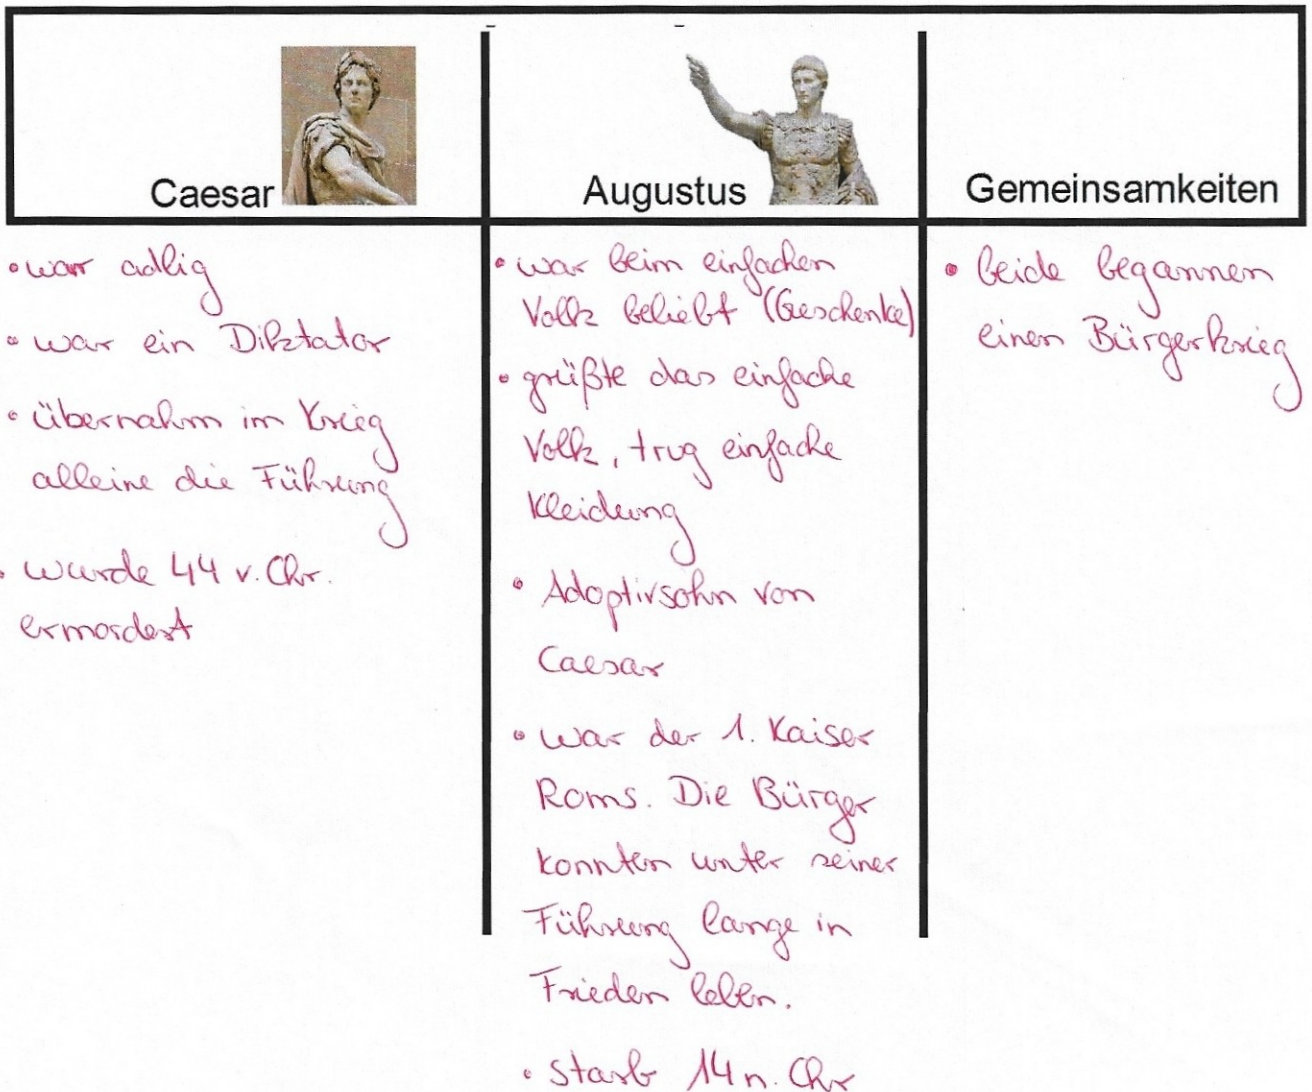 Caesar
Augustus
Gemeinsamkeiten
• war adlig
• war ein Diktator
• übernahm im Krieg
alleine die Führung
• wurde 44 v. Chr.
ermordet
• war beim einfachen
Volk beliebt (Geschenke)
• grüßte das einfache
Volk, trug einfache
Kleidung
• Adoptivsohn von
Caesar
• war der 1. Kaiser
Roms. Die Bürger
konnten unter seiner
Führung lange in
Frieden leben.
• starb 14 n. Chr
• beide begannen
einen Bürgerkrieg